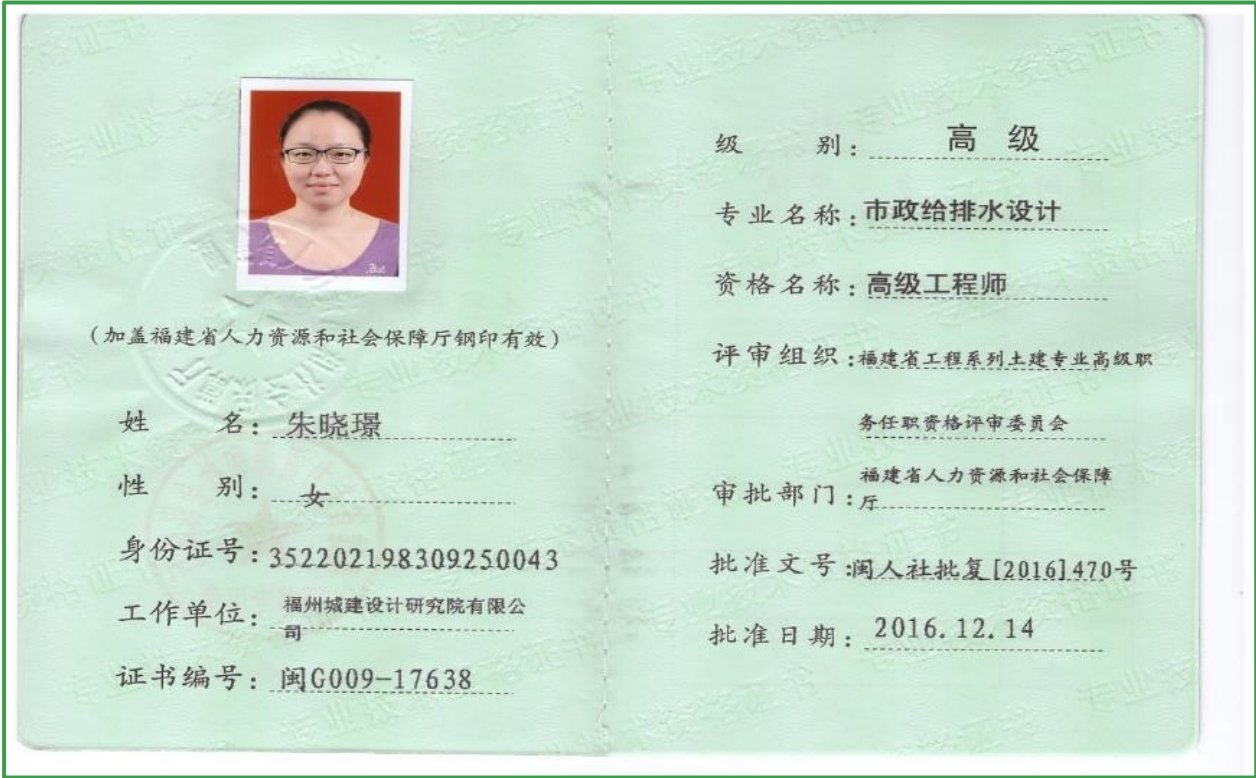 (加盖福建省人力资源和社会保障厅钢印有效)
姓 名: 朱晓璟
性 别: 女
身份证号:352202198309250043
工作单位: 福州城建设计研究院有限公
司
证书编号: 闽G009-17638
级 别: 高 级
专业名称:市政给排水设计
资格名称:高级工程师
评审组织:福建省工程系列土建专业高级职
务任职资格评审委员会
审批部门:福建省人力资源和社会保障
厅
批准文号:闽人社批复[2016]470号
批准日期: 2016.12.14